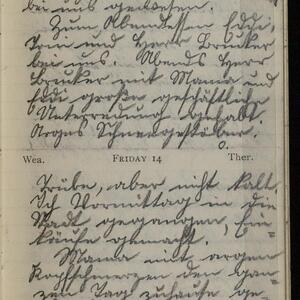 bei uns gewesen.
Zum Abendessen Eddi,
Tom und Herr Brucker
bei uns. Abends Herr
Brucker mit Mama und
Eddi große geschäftliche
Unterredung gehabt.
Arges Schneegestöber.
Wea. FRIDAY 14 Ther.
Trübe, aber nicht kalt.
Ich Vormittag in die
Stadt gegangen, Ein-
käufe gemacht.
Mama mit argen
Kopfschmerzen den gan-
zen Tag zuhause ge-